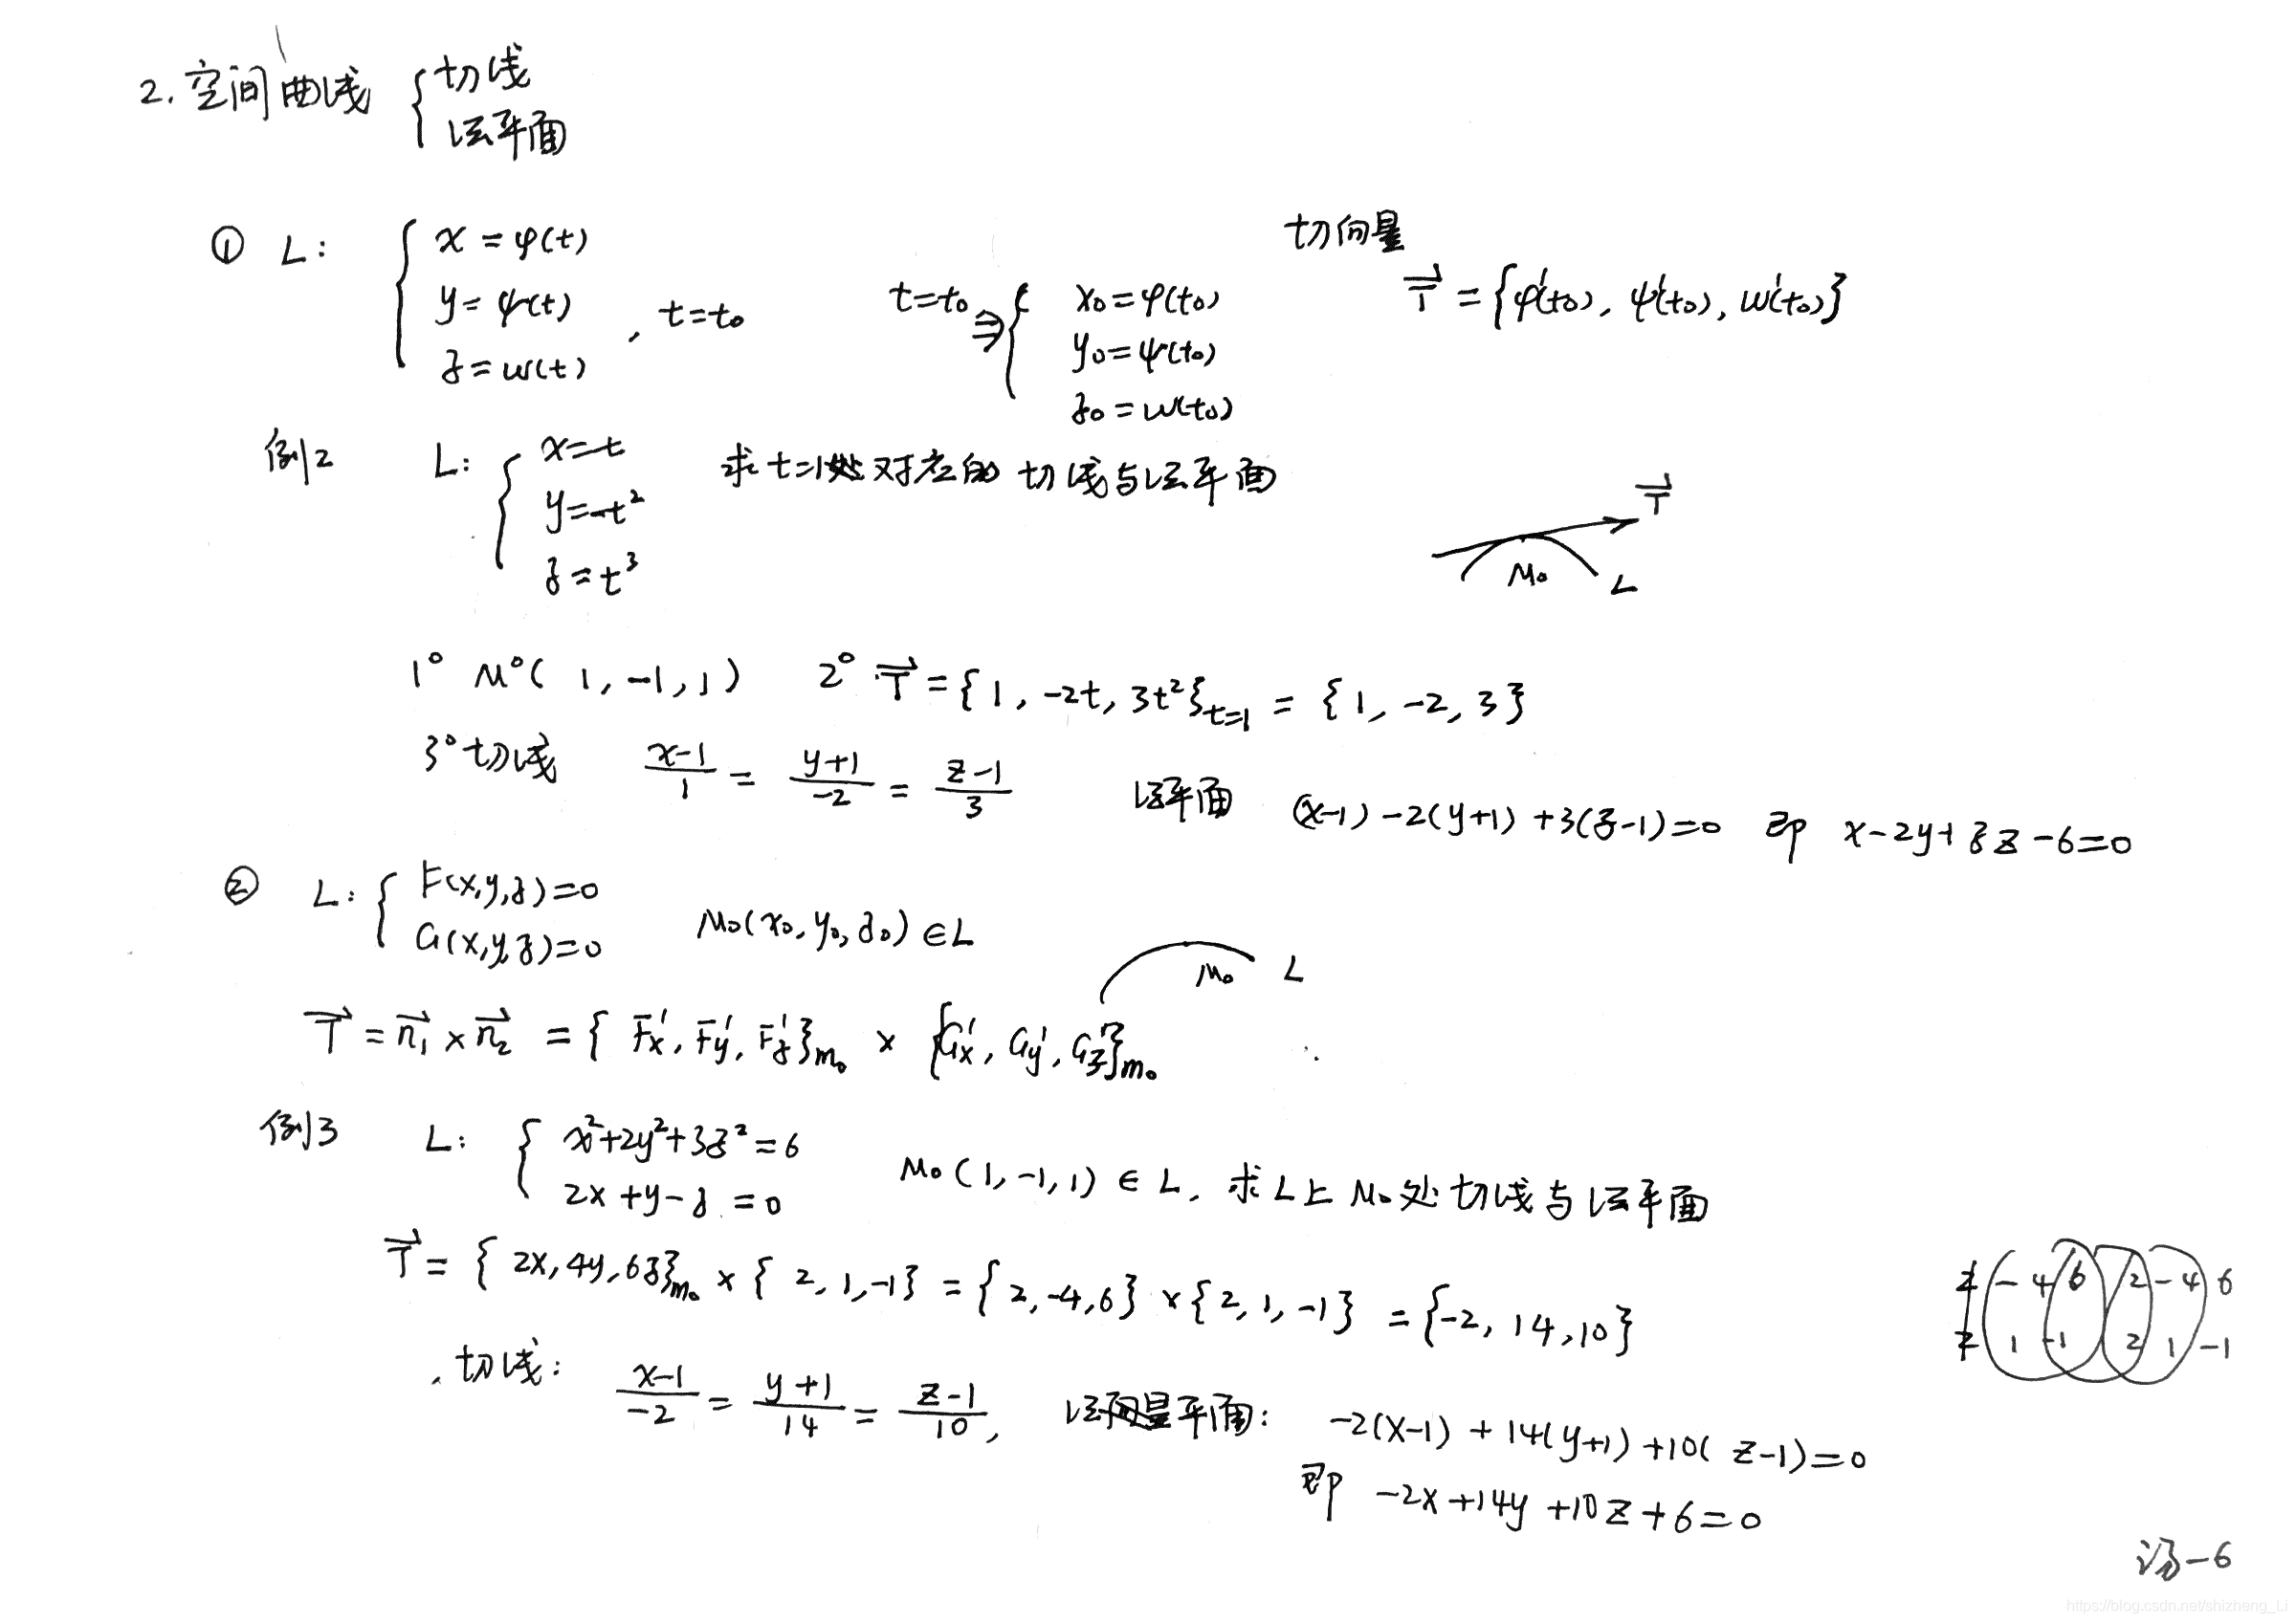 2. 空间曲线 { 切线
法平面
① L: { x = φ(t)
y = ψ(t) , t=t₀
z = w(t)
t=t₀ ⇒ { x₀ = φ(t₀)
y₀ = ψ(t₀)
z₀ = w(t₀)
切向量
T⃗ = {φ'(t₀), ψ'(t₀), w'(t₀)}
例2 L: { x = t
y = -t²
z = t³
求 t=1处对应的 切线与法平面
T⃗
M₀ L
1° M°( 1, -1, 1 ) 2° T⃗ = { 1, -2t, 3t²}t=1 = { 1, -2, 3 }
3° 切线 (x-1)/1 = (y+1)/-2 = (z-1)/3 法平面 (x-1) -2(y+1) +3(z-1)=0 即 x-2y+3z-6=0
② L: { F(x,y,z)=0
G(x,y,z)=0
M₀(x₀, y₀, z₀) ∈ L
M₀ L
T⃗ = n₁⃗ × n₂⃗ = { F'x, F'y, F'z}m₀ × {G'x, G'y, G'z}m₀
例3 L: { x²+2y²+3z² = 6
2x+y-z = 0
M₀ (1, -1, 1) ∈ L, 求 L上 M₀ 处 切线与法平面
T⃗ = { 2x, 4y, 6z}m₀ × { 2, 1, -1} = {2, -4, 6} × {2, 1, -1} = {-2, 14, 10}
2 -4 6 2 -4 6
2 1 -1 2 1 -1
切线: (x-1)/-2 = (y+1)/14 = (z-1)/10, 法平面: -2(x-1) + 14(y+1) +10( z-1)=0
即 -2x+14y+10z+6=0
汤-6
https://blog.csdn.net/shizheng_Li